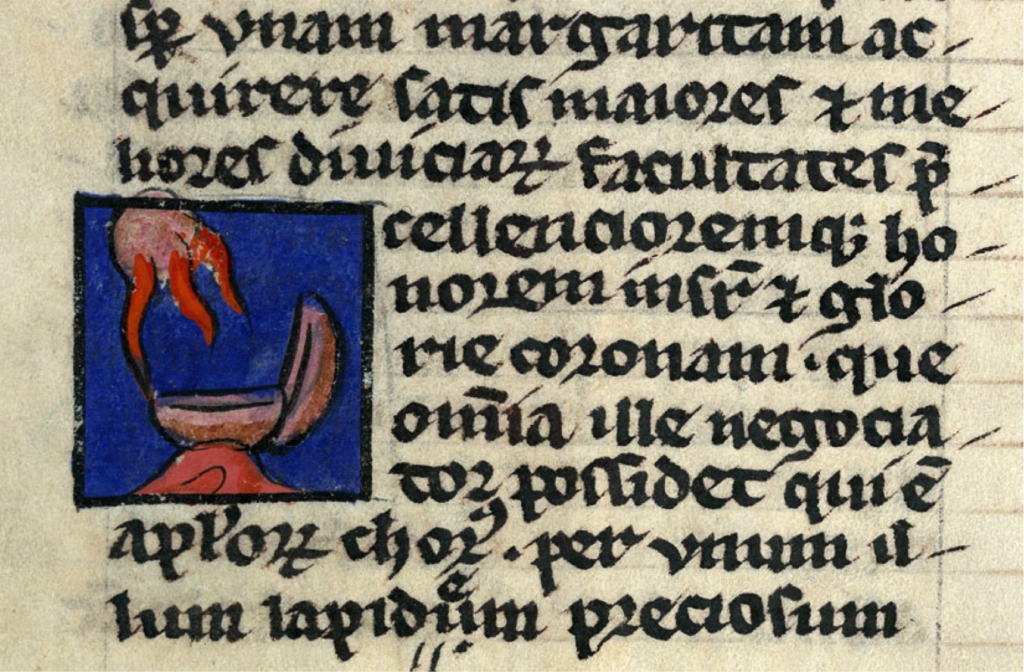 sp̄ vnam margaritam ac-
quirere satis maiores ⁊ me-
liores diuiciaꝝ facultates p̄-
cellencioremqꝫ ho-
norem insr̄ ⁊ glo-
rie coronam · que
om̄ia ille negocia-
tor possidet qui ē
apl'oꝝ chorꝰ . per vnum il-
lum lapideum preciosum